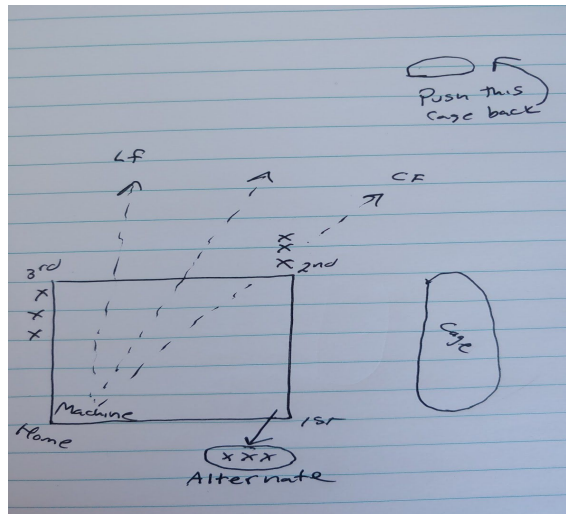 Push this
Cage back
Lf
CF
3rd
x
x
x
x
x
x
2nd
Cage
Machine
Home
1st
x x x
Alternate